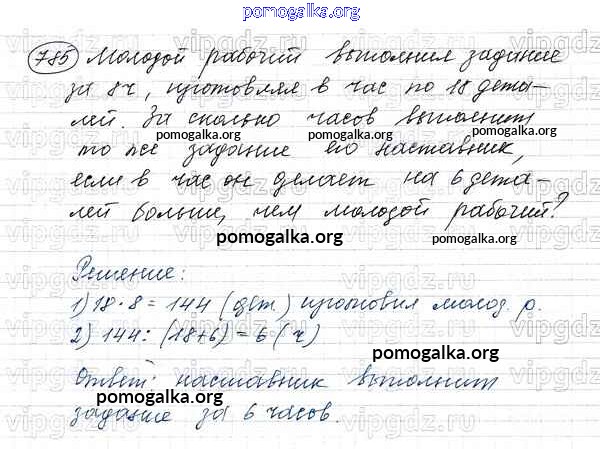 pomogalka.org
785 Молодой рабочий выполнил задание
за 8ч, изготовляя в час по 18 дета-
лей. За сколько часов выполнит
pomogalka.org pomogalka.org
то же задание его наставник,
если в час он делает на 6 дета-
лей больше, чем молодой рабочий?
pomogalka.org
Решение:
1) 18·8=144 (дет.) изготовил молод. р.
2) 144:(18+6)=6 (ч)
pomogalka.org
Ответ: наставник выполнит
задание за 6 часов.
pomogalka.org